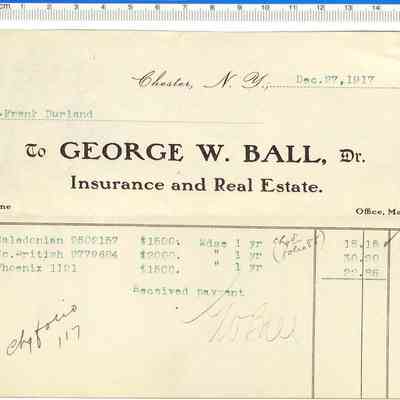 cm 1 2 3 4 5 6 7 8 9 10 11 12 13 14
Chester, N. Y., Dec.27,1917
Frank Durland
To GEORGE W. BALL, Dr.
Insurance and Real Estate.
ne Office, Ma
aledonian 2502157 $1500. Mdse 1 yr 15.15
o.British 2779684 $2000. " 1 yr 30.30
hoenix 1121 $1500. " 1 yr 22.86
Received payment
117